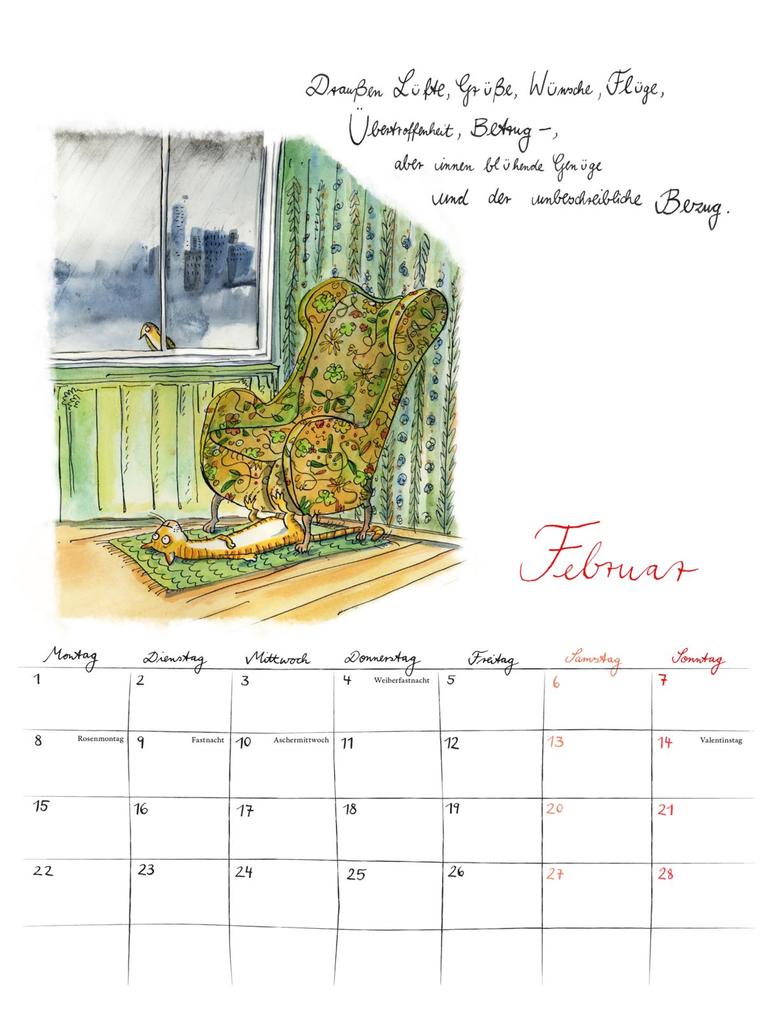 Draußen Lüfte, Grüße, Wünsche, Flüge,
Übertroffenheit, Betrug –,
aber innen blühende Genüge
und der unbeschreibliche Bezug.
Februar
Montag Dienstag Mittwoch Donnerstag Freitag Samstag Sonntag
1 2 3 4 Weiberfastnacht 5 6 7
8 Rosenmontag 9 Fastnacht 10 Aschermittwoch 11 12 13 14 Valentinstag
15 16 17 18 19 20 21
22 23 24 25 26 27 28